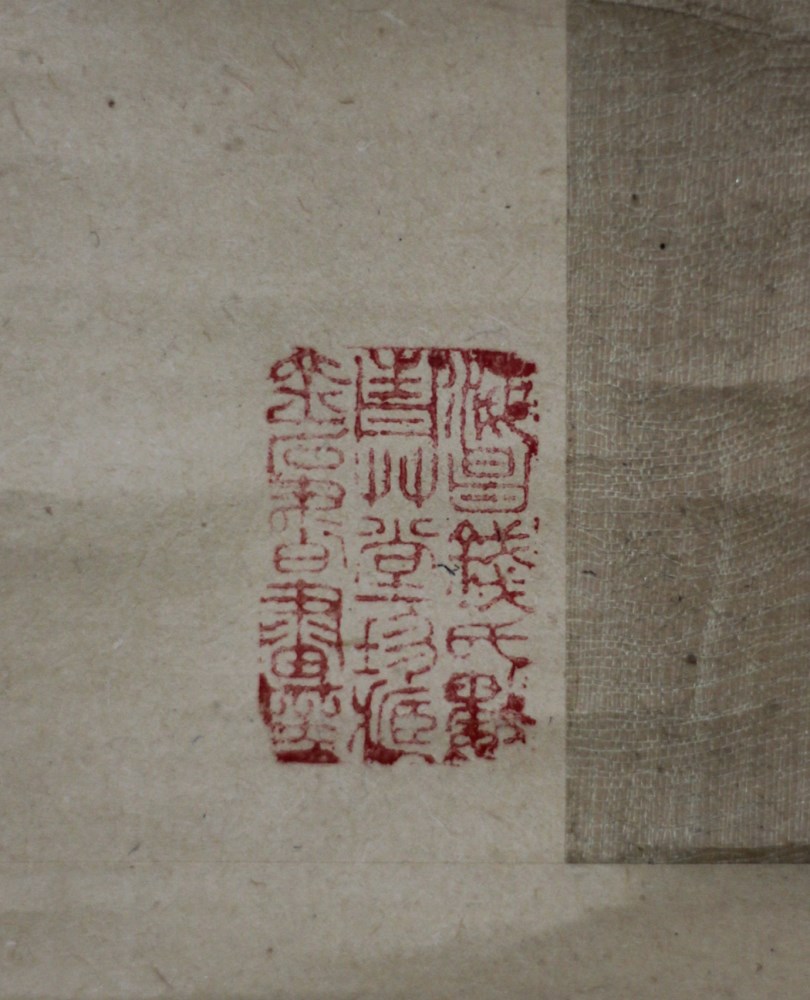 海昌錢氏數
青艸堂珍藏
金石書畫